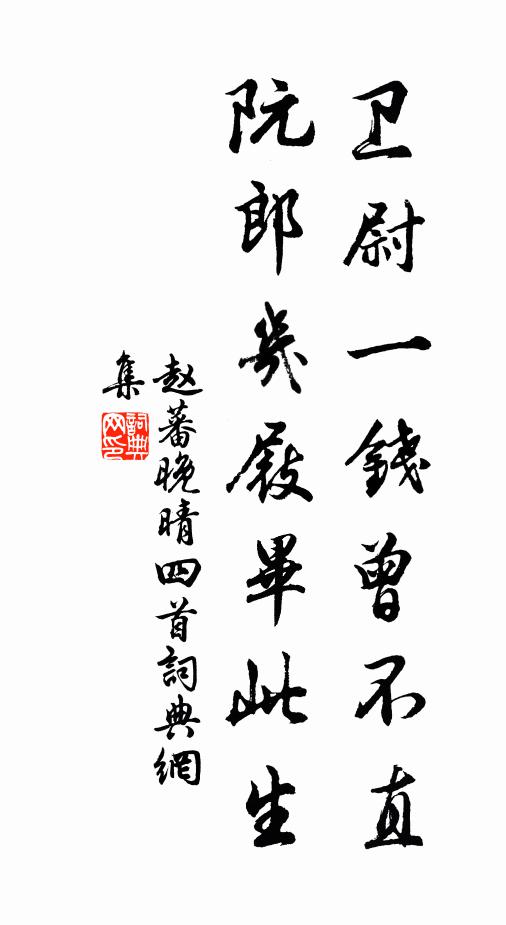 卫尉一錢曾不直
阮郎幾屐畢此生
赵蕃晚晴四首詞典網
集
詞典网印